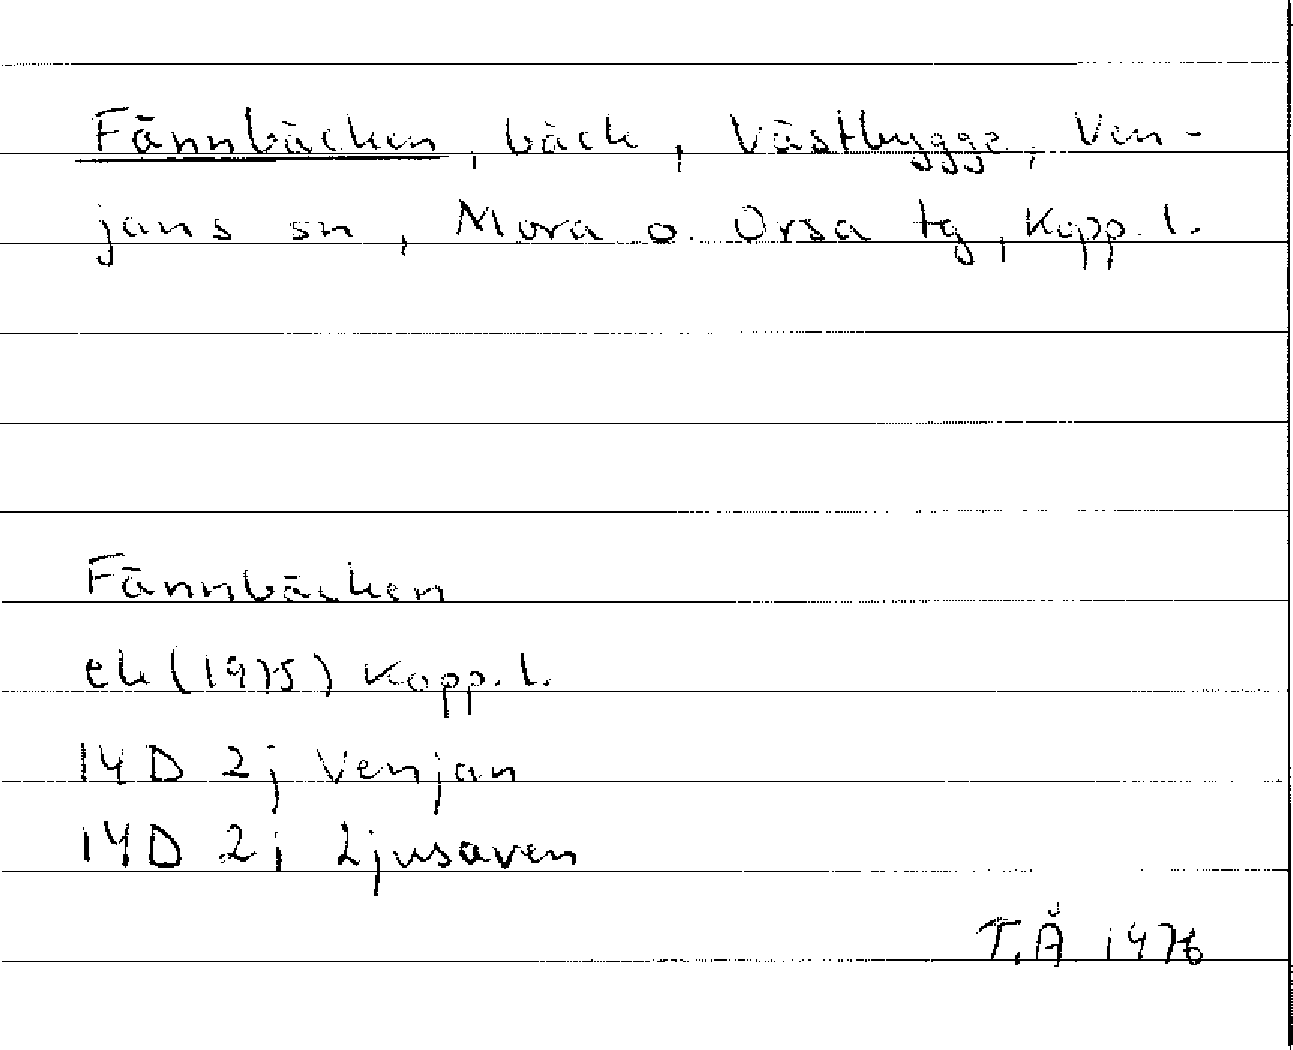 Fännbäcken, bäck, Västbygge, Ven-
jans sn, Mora o. Orsa tg, Kopp. l.
Fännbäcken
ek (1975) Kopp. l.
14 D 2j Venjan
14 D 2i Ljusaven
T.Å 1976